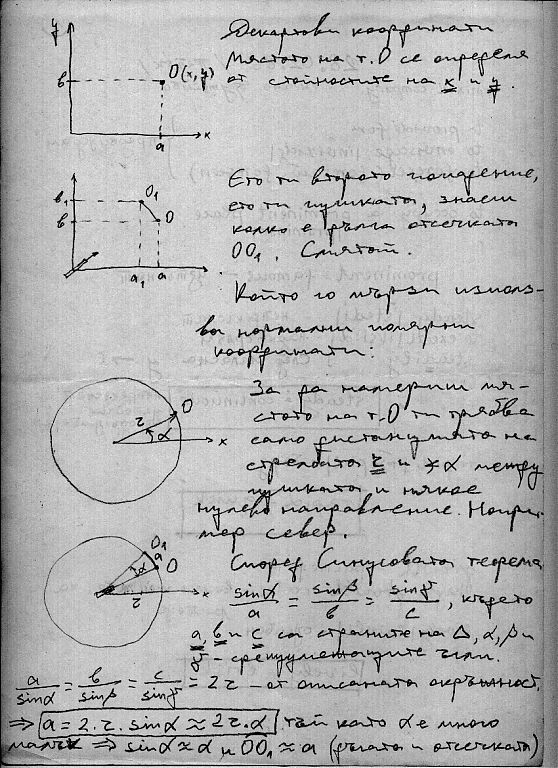 Декартови координати
Мястото на т. O се определя
от стойностите на x и y.
y
в
O(x, y)
a
x
Ето ти второто попадение,
ето ти пушката, знаеш
колко е дълга отсечката
OO₁. Смятай.
в₁
в
O₁
O
a₁
a
Който го мързи използ-
ва нормални полярни
координати:
За да намериш мя-
стото на т. O ти трябва
само дистанцията на
стрелбата r и ∢α между
пушката и някое
нулево направление. Напри-
мер север.
O
r
α
x
Според Синусовата теорема
sinα/a = sinβ/в = sinγ/c, където
a, в и c са страните на Δ, α, β и
γ - срещулежащите ъгли.
O₁
a
O
α
r
x
a/sinα = в/sinβ = c/sinγ = 2r - от описаната окръжност.
⇒ a = 2.r.sinα ≈ 2r.α тъй като α е много
малък ⇒ sinα ≈ α и OO₁ ≈ a (дъгата и отсечката)